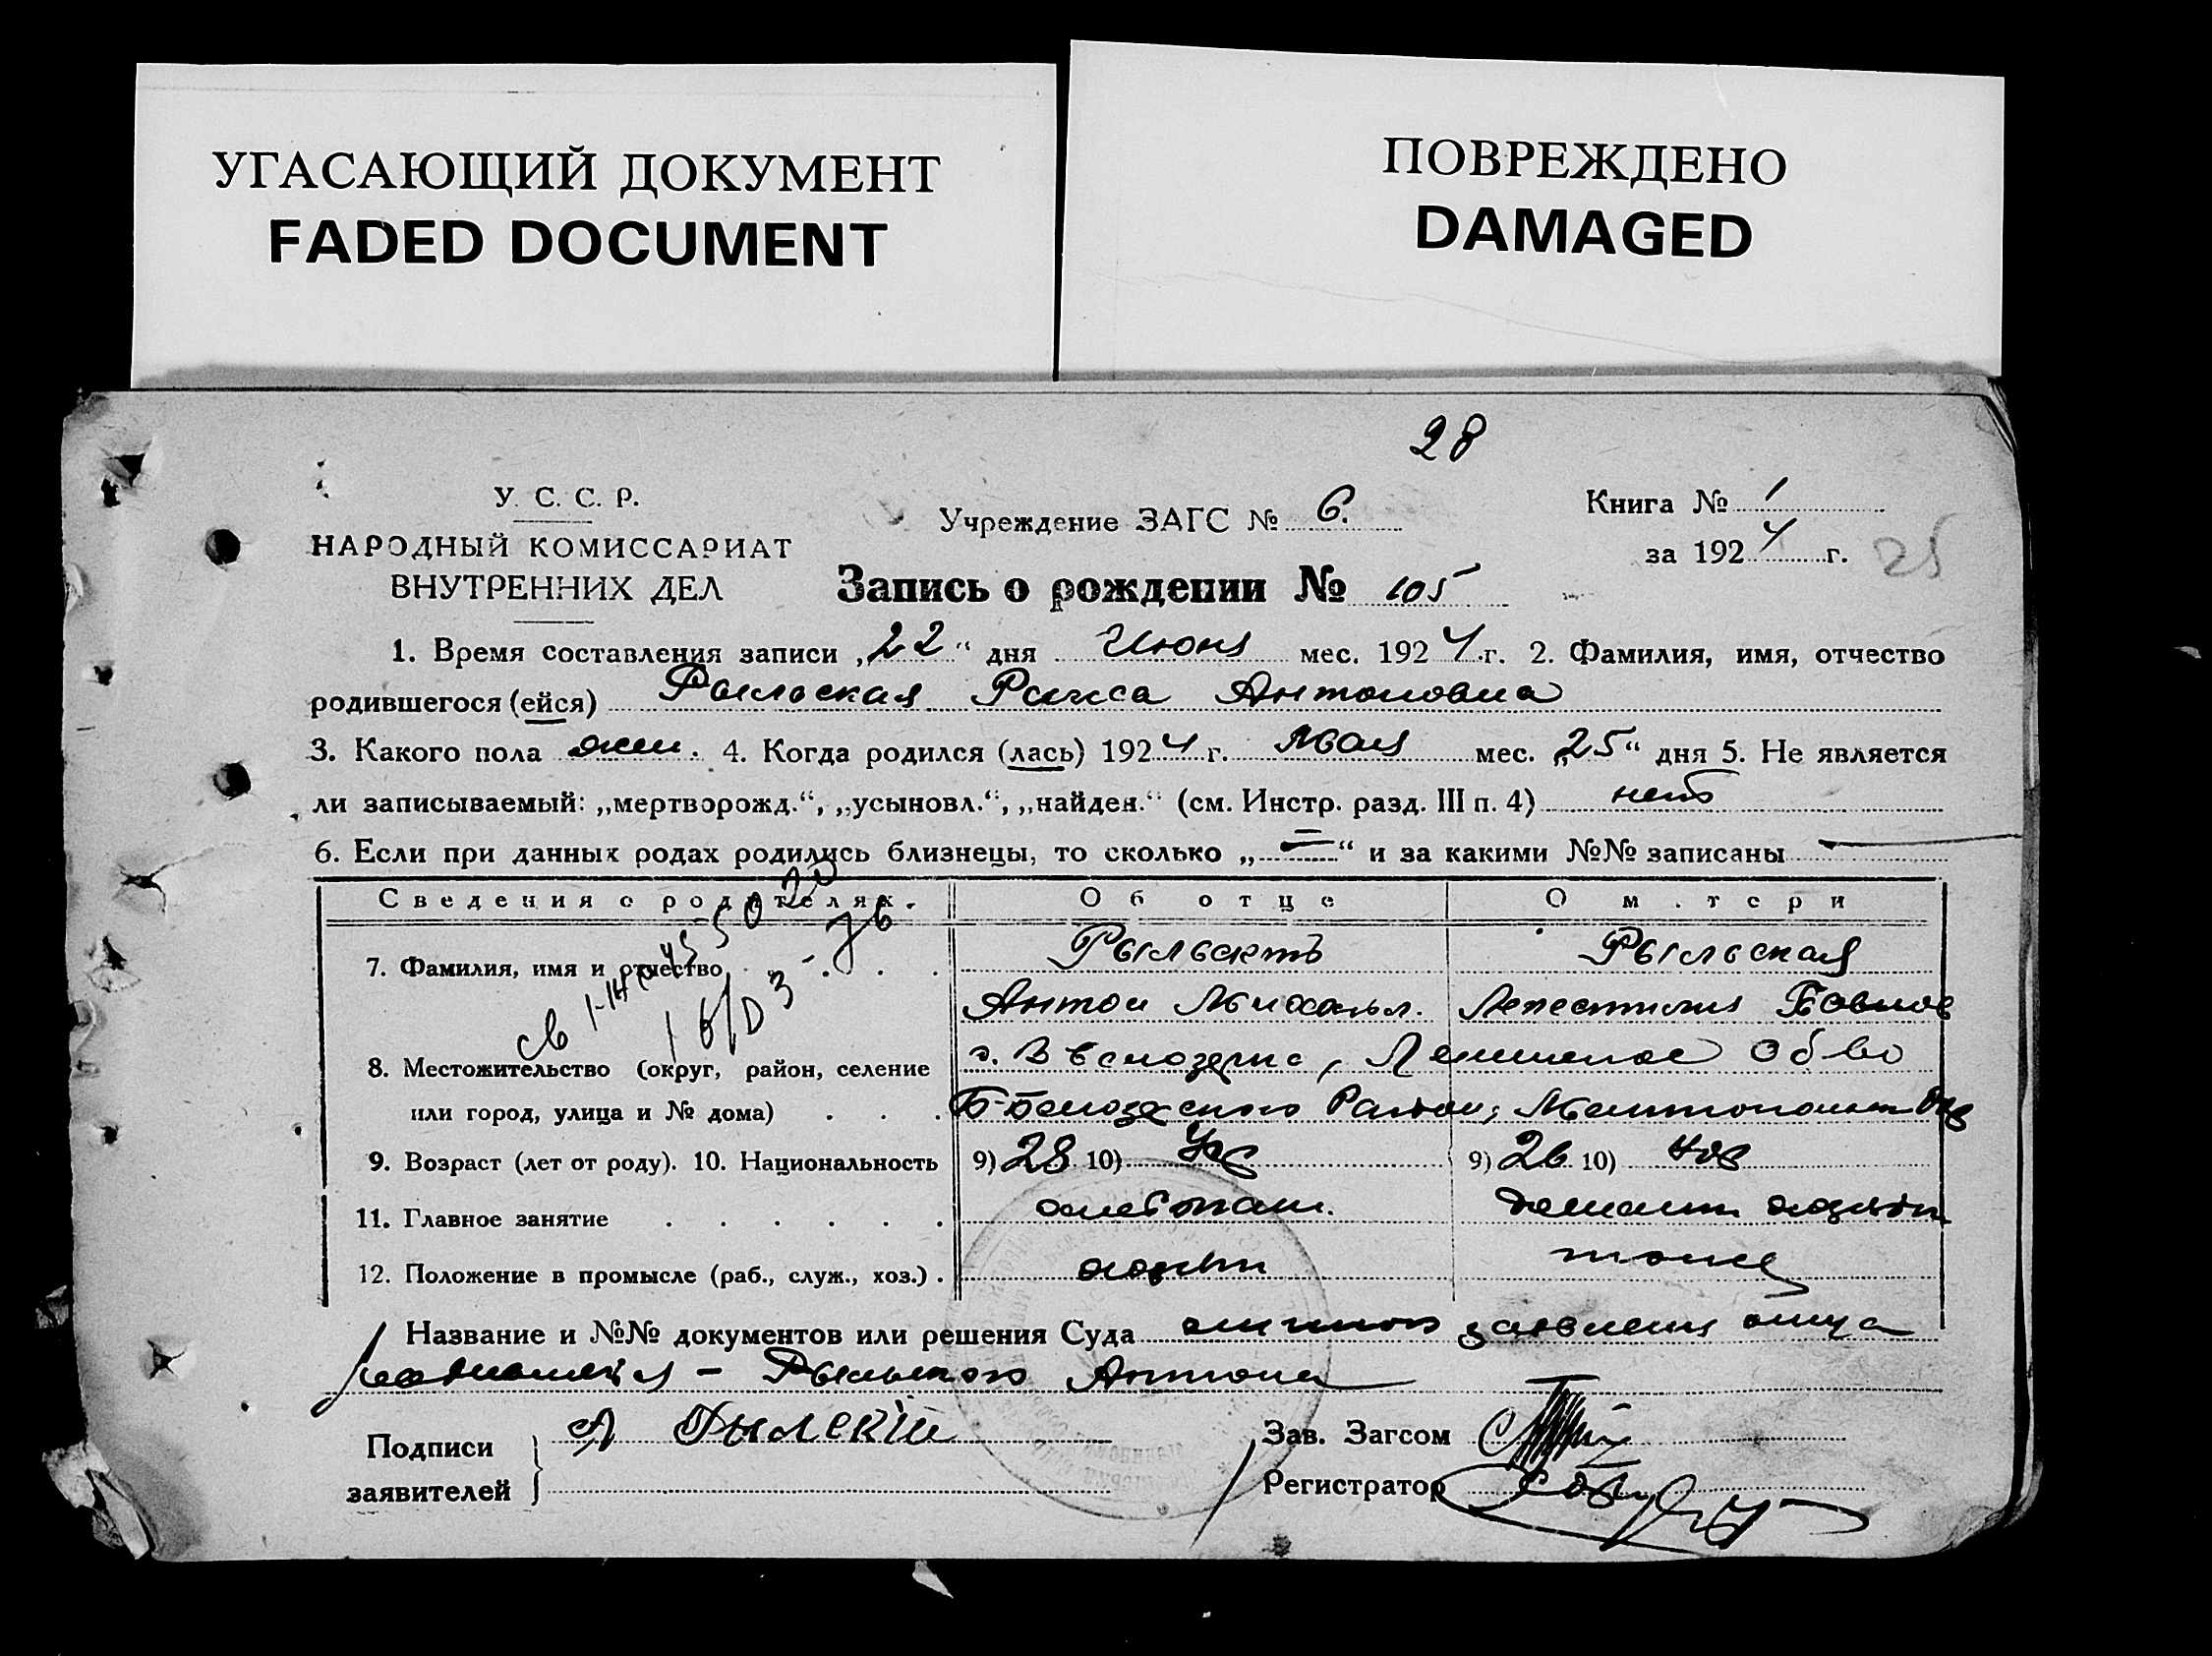 УГАСАЮЩИЙ ДОКУМЕНТ
FADED DOCUMENT
ПОВРЕЖДЕНО
DAMAGED
28
У. С. С. Р.
НАРОДНЫЙ КОМИССАРИАТ
ВНУТРЕННИХ ДЕЛ
Учреждение ЗАГС № 6.
Книга № 1
за 1924 г. 25
Запись о рождении № 105
1. Время составления записи „22“ дня Июня мес. 1924 г. 2. Фамилия, имя, отчество
родившегося (ейся) Рыльская Раиса Антоновна
3. Какого пола жен. 4. Когда родился (лась) 1924 г. Мая мес. „25“ дня 5. Не является
ли записываемый: „мертворожд.“, „усыновл.“, „найден.“ (см. Инстр. разд. III п. 4) нет
6. Если при данных родах родились близнецы, то сколько „=“ и за какими №№ записаны —
Сведения о родителях. Об отце О матери
7. Фамилия, имя и отчество Рыльский Рыльская
Антон Михайл.
8. Местожительство (округ, район, селение
или город, улица и № дома)
9. Возраст (лет от роду). 10. Национальность 9) 28 10) Укр 9) 26 10) Укр
11. Главное занятие хлебопаш. домашн хозяйст
12. Положение в промысле (раб., служ., хоз.) хозяин тоже
Название и №№ документов или решения Суда личного заявления отца
– Рыльского Антона
Подписи
заявителей
А Рыльский
Зав. Загсом
Регистратор